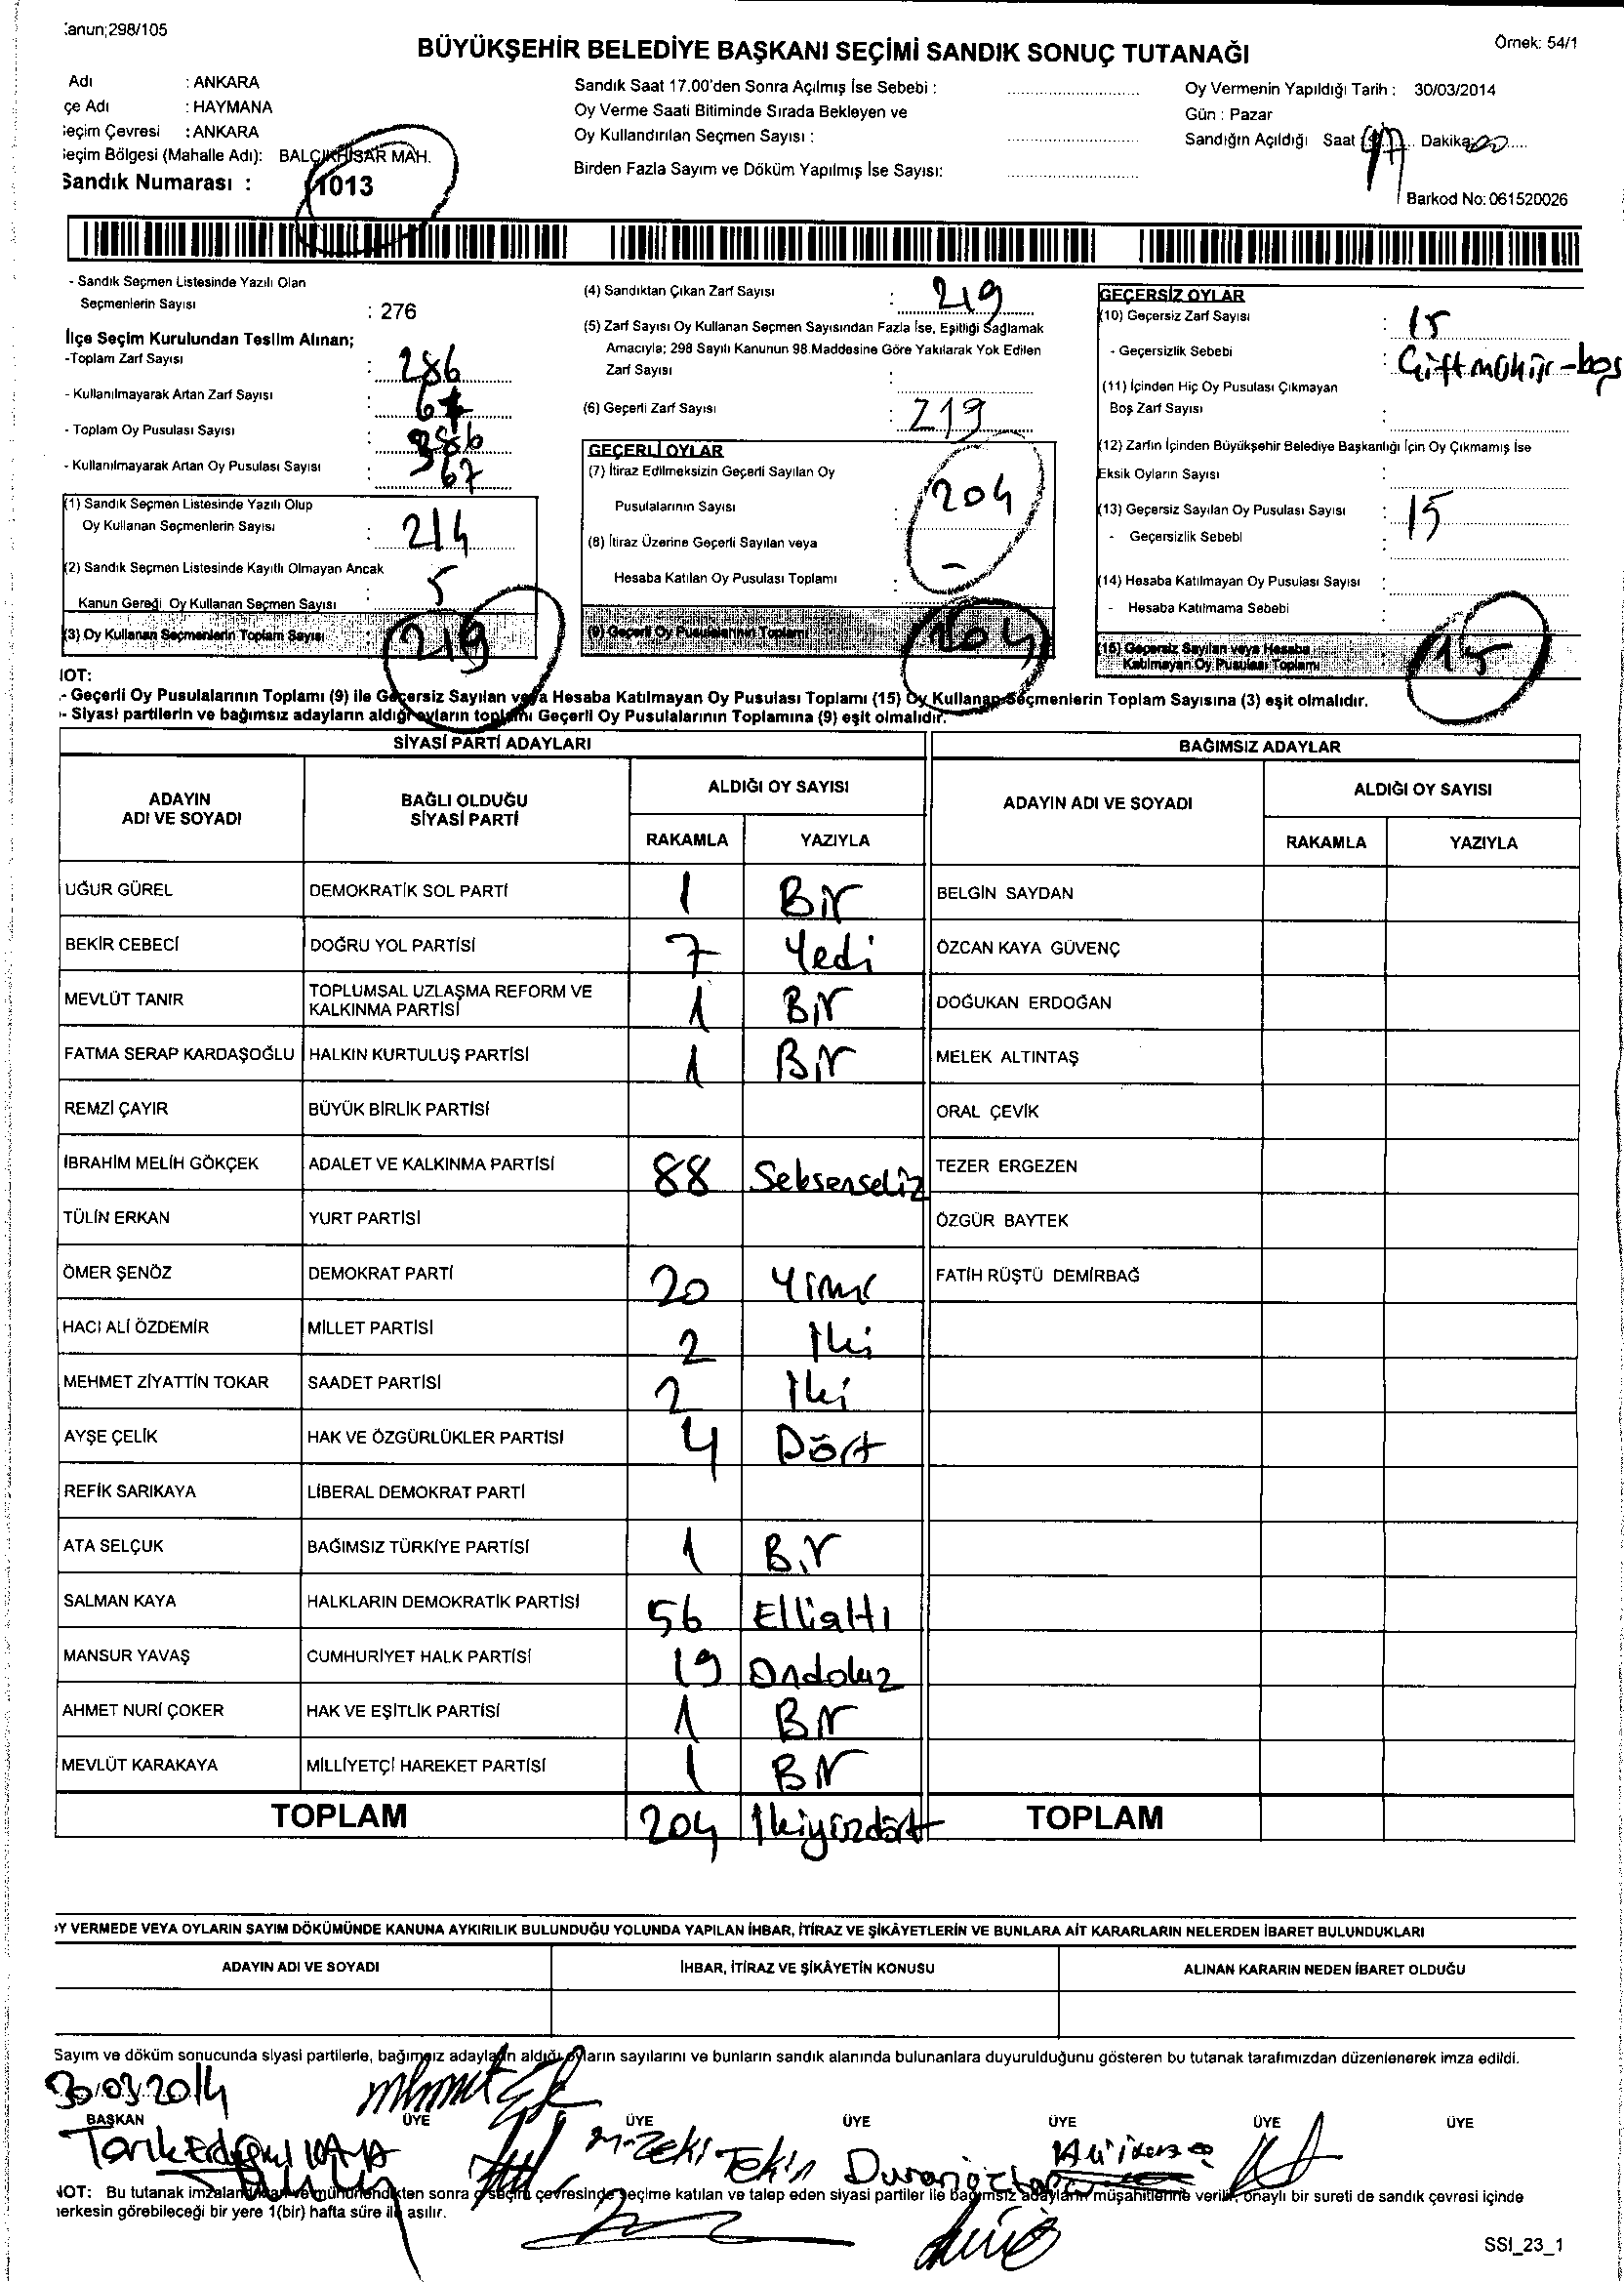 anun;298/105
BÜYÜKŞEHİR BELEDİYE BAŞKANI SEÇİMİ SANDIK SONUÇ TUTANAĞI
Örnek: 54/1
Adı : ANKARA
çe Adı : HAYMANA
eçim Çevresi : ANKARA
eçim Bölgesi (Mahalle Adı): BALÇIKHİSAR MAH.
Sandık Numarası : 1013
Sandık Saat 17.00'den Sonra Açılmış İse Sebebi :
Oy Verme Saati Bitiminde Sırada Bekleyen ve
Oy Kullandırılan Seçmen Sayısı :
Birden Fazla Sayım ve Döküm Yapılmış İse Sayısı:
Oy Vermenin Yapıldığı Tarih : 30/03/2014
Gün : Pazar
Sandığın Açıldığı Saat 17 Dakika 00
Barkod No: 061520026
- Sandık Seçmen Listesinde Yazılı Olan
Seçmenlerin Sayısı : 276
İlçe Seçim Kurulundan Teslim Alınan;
-Toplam Zarf Sayısı : 286
- Kullanılmayarak Artan Zarf Sayısı : 67
- Toplam Oy Pusulası Sayısı : 286
- Kullanılmayarak Artan Oy Pusulası Sayısı : 67
(1) Sandık Seçmen Listesinde Yazılı Olup
Oy Kullanan Seçmenlerin Sayısı : 214
(2) Sandık Seçmen Listesinde Kayıtlı Olmayan Ancak
Kanun Gereği Oy Kullanan Seçmen Sayısı : 5
(3) Oy Kullanan Seçmenlerin Toplam Sayısı : 219
(4) Sandıktan Çıkan Zarf Sayısı : 219
(5) Zarf Sayısı Oy Kullanan Seçmen Sayısından Fazla İse, Eşitliği Sağlamak
Amacıyla; 298 Sayılı Kanunun 98.Maddesine Göre Yakılarak Yok Edilen
Zarf Sayısı :
(6) Geçerli Zarf Sayısı : 219
GEÇERLİ OYLAR
(7) İtiraz Edilmeksizin Geçerli Sayılan Oy
Pusulalarının Sayısı : 204
(8) İtiraz Üzerine Geçerli Sayılan veya
Hesaba Katılan Oy Pusulası Toplamı : -
(9) Geçerli Oy Pusulalarının Toplamı 204
GEÇERSİZ OYLAR
(10) Geçersiz Zarf Sayısı : 15
- Geçersizlik Sebebi : Çift mühür-boş
(11) İçinden Hiç Oy Pusulası Çıkmayan
Boş Zarf Sayısı :
(12) Zarfın İçinden Büyükşehir Belediye Başkanlığı İçin Oy Çıkmamış İse
Eksik Oyların Sayısı :
(13) Geçersiz Sayılan Oy Pusulası Sayısı : 15
- Geçersizlik Sebebi :
(14) Hesaba Katılmayan Oy Pusulası Sayısı :
- Hesaba Katılmama Sebebi :
(15) Geçersiz Sayılan veya Hesaba
Katılmayan Oy Pusulası Toplamı : 15
NOT:
- Geçerli Oy Pusulalarının Toplamı (9) ile Geçersiz Sayılan veya Hesaba Katılmayan Oy Pusulası Toplamı (15) Oy Kullanan Seçmenlerin Toplam Sayısına (3) eşit olmalıdır.
- Siyasi partilerin ve bağımsız adayların aldığı oyların toplamı Geçerli Oy Pusulalarının Toplamına (9) eşit olmalıdır.
SİYASİ PARTİ ADAYLARI BAĞIMSIZ ADAYLAR
ADAYIN ADI VE SOYADI BAĞLI OLDUĞU SİYASİ PARTİ ALDIĞI OY SAYISI ADAYIN ADI VE SOYADI ALDIĞI OY SAYISI
RAKAMLA YAZIYLA RAKAMLA YAZIYLA
UĞUR GÜREL DEMOKRATİK SOL PARTİ 1 Bir BELGİN SAYDAN
BEKİR CEBECİ DOĞRU YOL PARTİSİ 7 Yedi ÖZCAN KAYA GÜVENÇ
MEVLÜT TANIR TOPLUMSAL UZLAŞMA REFORM VE KALKINMA PARTİSİ 1 Bir DOĞUKAN ERDOĞAN
FATMA SERAP KARDAŞOĞLU HALKIN KURTULUŞ PARTİSİ 1 Bir MELEK ALTINTAŞ
REMZİ ÇAYIR BÜYÜK BİRLİK PARTİSİ ORAL ÇEVİK
İBRAHİM MELİH GÖKÇEK ADALET VE KALKINMA PARTİSİ 88 Seksensekiz TEZER ERGEZEN
TÜLİN ERKAN YURT PARTİSİ ÖZGÜR BAYTEK
ÖMER ŞENÖZ DEMOKRAT PARTİ 20 Yirmi FATİH RÜŞTÜ DEMİRBAĞ
HACI ALİ ÖZDEMİR MİLLET PARTİSİ 2 İki
MEHMET ZİYATTİN TOKAR SAADET PARTİSİ 2 İki
AYŞE ÇELİK HAK VE ÖZGÜRLÜKLER PARTİSİ 4 Dört
REFİK SARIKAYA LİBERAL DEMOKRAT PARTİ
ATA SELÇUK BAĞIMSIZ TÜRKİYE PARTİSİ 1 Bir
SALMAN KAYA HALKLARIN DEMOKRATİK PARTİSİ 56 Ellialtı
MANSUR YAVAŞ CUMHURİYET HALK PARTİSİ 19 Ondokuz
AHMET NURİ ÇOKER HAK VE EŞİTLİK PARTİSİ 1 Bir
MEVLÜT KARAKAYA MİLLİYETÇİ HAREKET PARTİSİ 1 Bir
TOPLAM 204 İkiyüzdört TOPLAM
Y VERMEDE VEYA OYLARIN SAYIM DÖKÜMÜNDE KANUNA AYKIRILIK BULUNDUĞU YOLUNDA YAPILAN İHBAR, İTİRAZ VE ŞİKÂYETLERİN VE BUNLARA AİT KARARLARIN NELERDEN İBARET BULUNDUKLARI
ADAYIN ADI VE SOYADI İHBAR, İTİRAZ VE ŞİKÂYETİN KONUSU ALINAN KARARIN NEDEN İBARET OLDUĞU
Sayım ve döküm sonucunda siyasi partilerle, bağımsız adayların aldığı oyların sayılarını ve bunların sandık alanında bulunanlara duyurulduğunu gösteren bu tutanak tarafımızdan düzenlenerek imza edildi.
30/03/2014
BAŞKAN ÜYE ÜYE ÜYE ÜYE ÜYE ÜYE
M.Zeki Tekin
NOT: Bu tutanak imzalandıktan ve mühürlendikten sonra o seçim çevresinde seçime katılan ve talep eden siyasi partiler ile bağımsız adayların müşahitlerine verilir, onaylı bir sureti de sandık çevresi içinde
herkesin görebileceği bir yere 1(bir) hafta süre ile asılır.
SSI_23_1